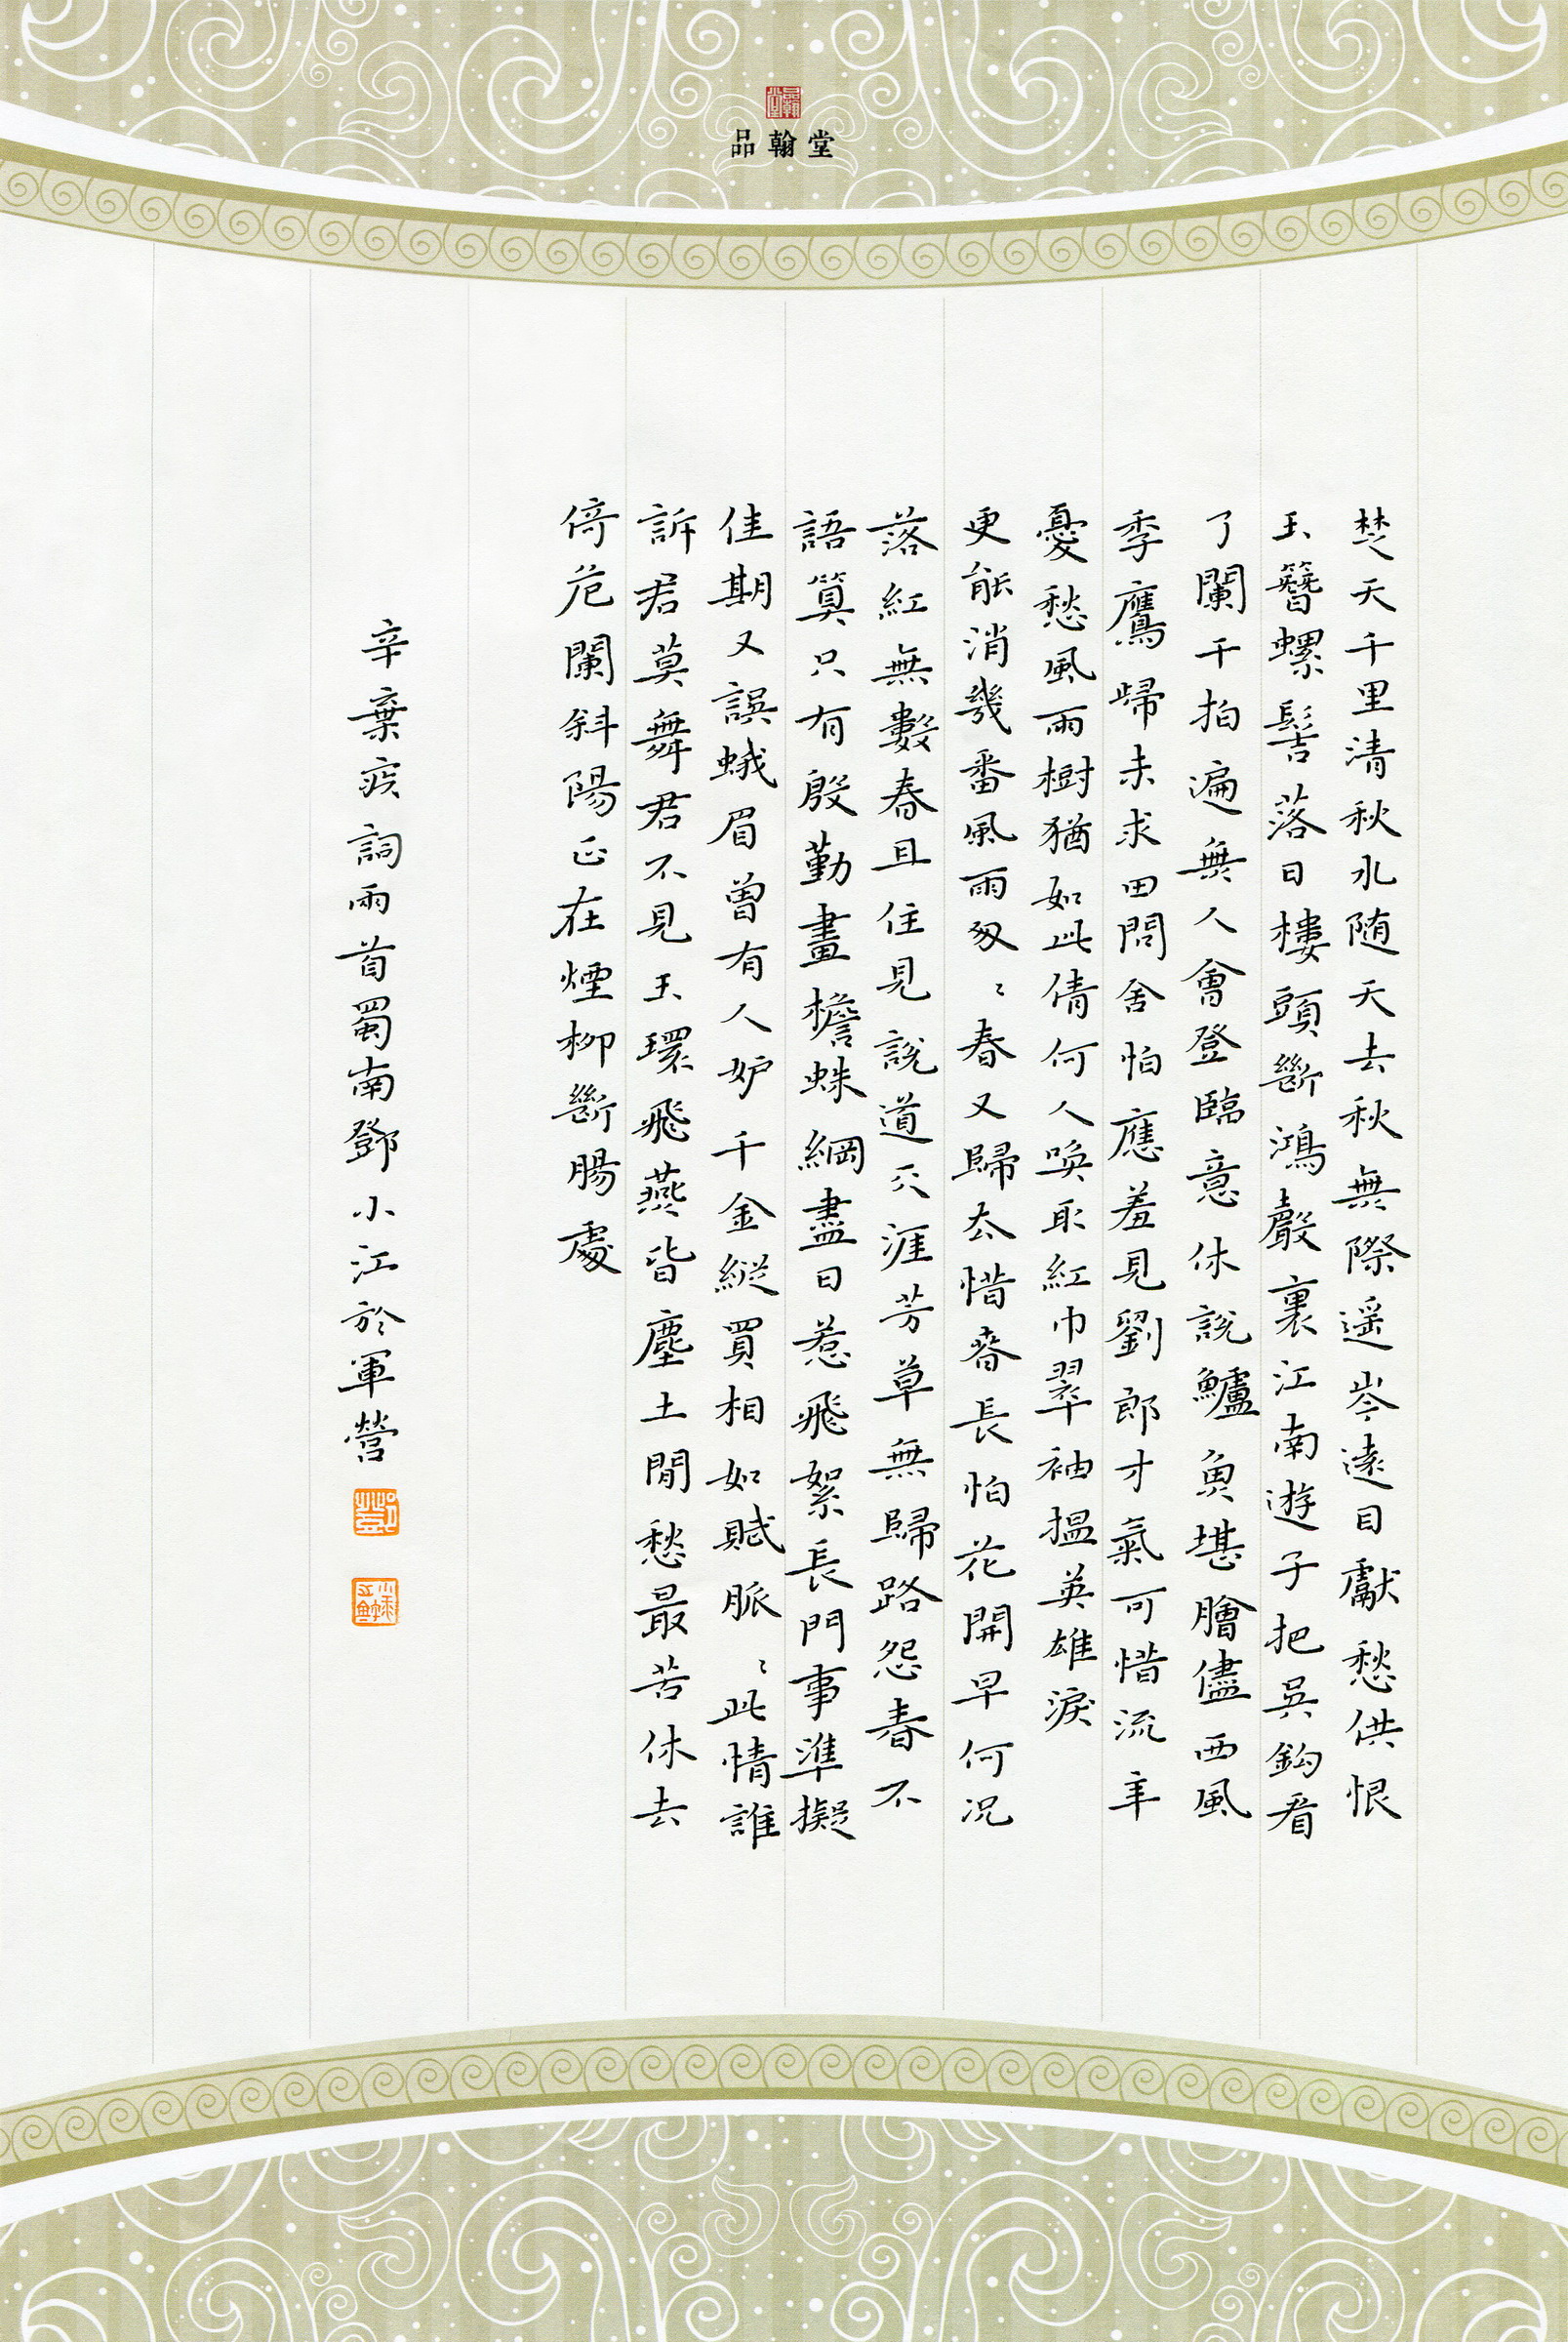 品翰堂
楚天千里清秋水随天去秋無際遥岑遠目獻愁供恨
玉簪螺髻落日樓頭斷鴻聲裏江南遊子把吳鈎看
了闌干拍遍無人會登臨意休說鱸魚堪膾儘西風
季鷹歸未求田問舍怕應羞見劉郎才氣可惜流年
憂愁風雨樹猶如此倩何人喚取紅巾翠袖搵英雄淚
更能消幾番風雨匆〻春又歸去惜春長怕花開早何況
落紅無數春且住見說道天涯芳草無歸路怨春不
語算只有殷勤畫檐蛛網盡日惹飛絮長門事準擬
佳期又誤蛾眉曾有人妒千金縱買相如賦脈〻此情誰
訴君莫舞君不見玉環飛燕皆塵土閒愁最苦休去
倚危闌斜陽正在煙柳斷腸處
辛棄疾詞兩首蜀南鄧小江於軍營